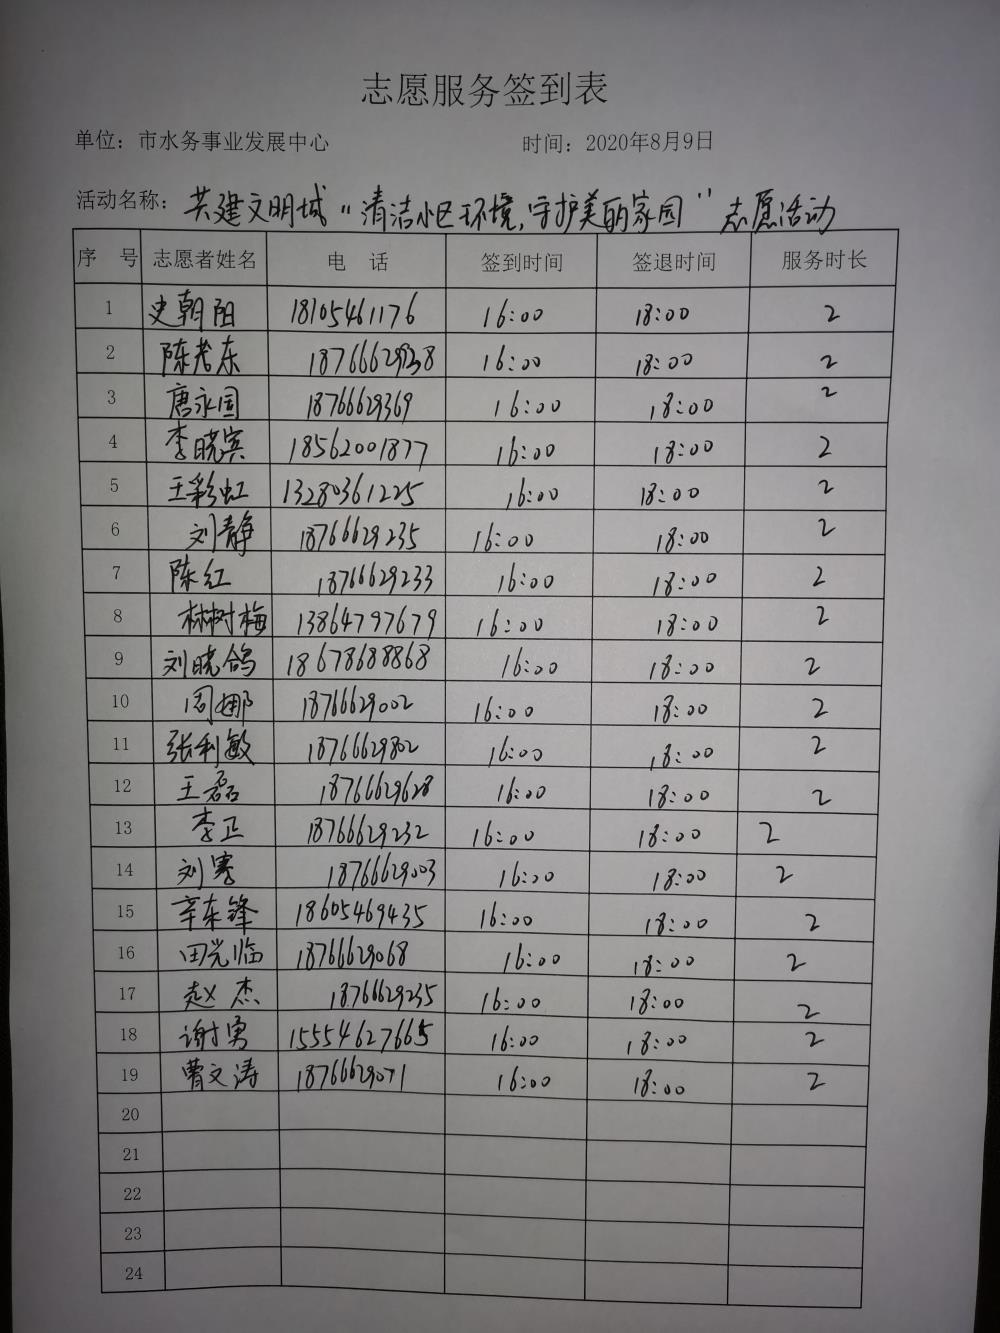 志愿服务签到表
单位：市水务事业发展中心 时间：2020年8月9日
活动名称：共建文明城“清洁小区环境,守护美的家园”志愿活动
序 号 志愿者姓名 电 话 签到时间 签退时间 服务时长
1 史朝阳 18105461176 16:00 18:00 2
2 陈老东 16:00 18:00 2
3 唐永国 18766629369 16:00 18:00 2
4 李晓宾 18562001877 16:00 18:00 2
5 王彩虹 13280361225 16:00 18:00 2
6 刘静 18766629235 16:00 18:00 2
7 陈红 18766629233 16:00 18:00 2
8 林树梅 13864797679 16:00 18:00 2
9 刘晓鸽 18678688868 16:00 18:00 2
10 周娜 18766629002 16:00 18:00 2
11 张利敏 18766629802 16:00 18:00 2
12 王磊 18766629628 16:00 18:00 2
13 李正 18766629232 16:00 18:00 2
14 刘骞 18766629003 16:00 18:00 2
15 辛东锋 18605469435 16:00 18:00 2
16 田光临 18766629068 16:00 18:00 2
17 赵杰 18766629235 16:00 18:00 2
18 谢勇 15554627665 16:00 18:00 2
19 曹文涛 18766629071 16:00 18:00 2
20
21
22
23
24